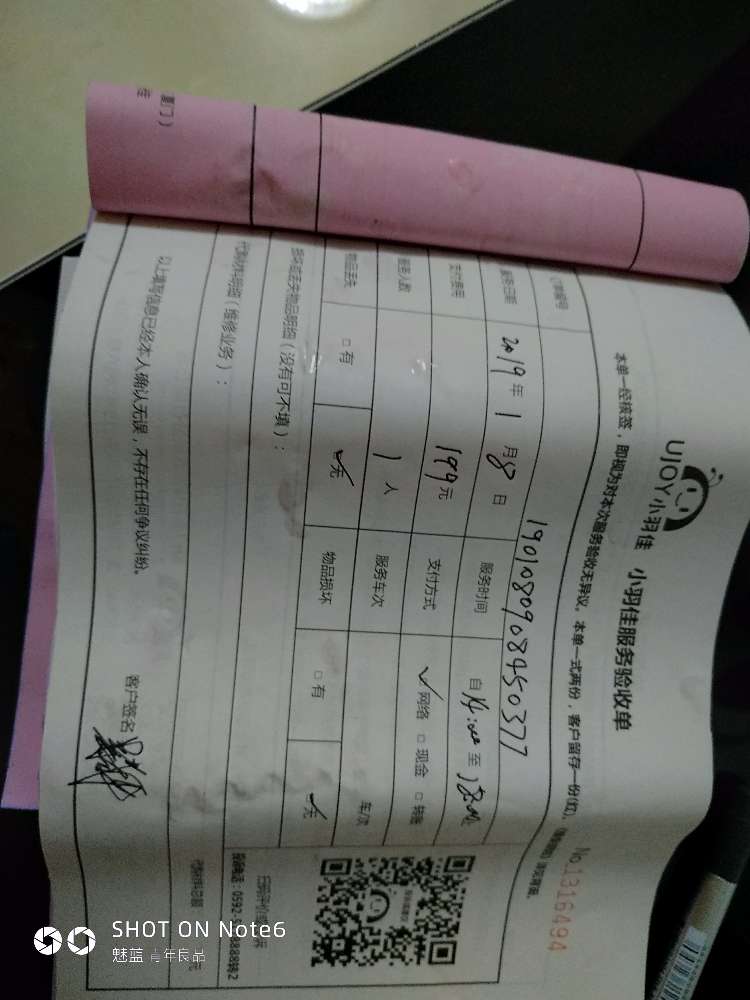 UJOY小羽佳
小羽佳服务验收单
本单一经核签，即视为对本次服务验收无异议。本单一式两份，客户留存一份(红)。
No.1316494
订单编号 190108090845037７
服务日期 2019年1月8日 服务时间 自14:00至18:00
支付费用 199元 支付方式 ✓网络 □现金 □转账
服务人数 1人 服务车次 车/次
物品丢失 □有 ✓无 物品损坏 □有 ✓无
损坏或丢失物品明细（没有可不填）：
代购材料明细（维修业务）：
代购材料总额 元
以上填写信息已经本人确认无误，不存在任何争议纠纷。
客户签名
厦门）
佳
SHOT ON Note6
魅蓝 青年良品